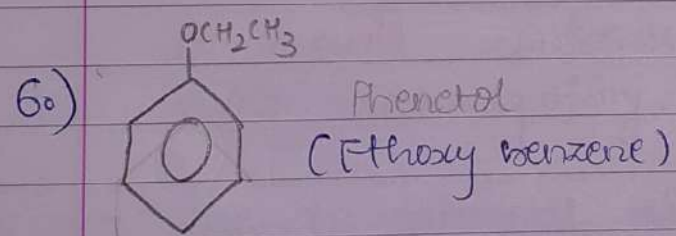 OCH2CH3
6.)
Phenetol
(Ethoxy benzene)